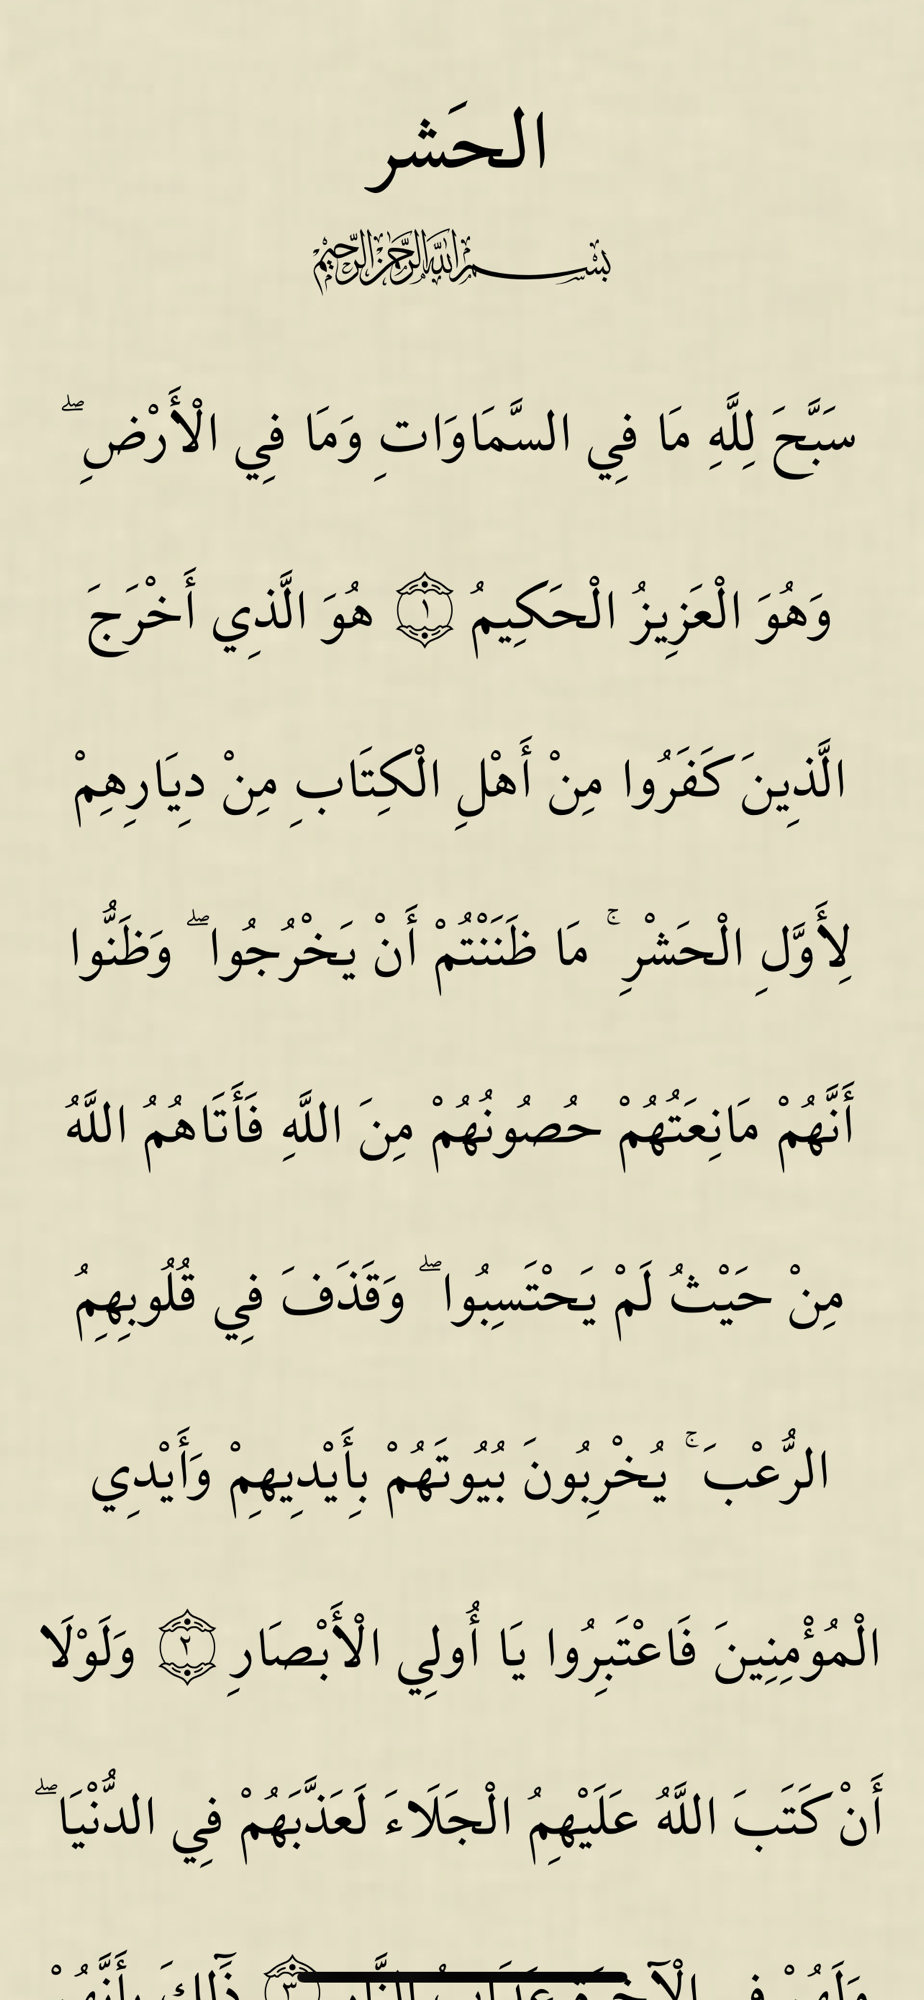 الحَشر
بِسْمِ اللَّهِ الرَّحْمَٰنِ الرَّحِيمِ
سَبَّحَ لِلَّهِ مَا فِي السَّمَاوَاتِ وَمَا فِي الْأَرْضِ ۖ
وَهُوَ الْعَزِيزُ الْحَكِيمُ ١ هُوَ الَّذِي أَخْرَجَ
الَّذِينَ كَفَرُوا مِنْ أَهْلِ الْكِتَابِ مِنْ دِيَارِهِمْ
لِأَوَّلِ الْحَشْرِ ۚ مَا ظَنَنْتُمْ أَنْ يَخْرُجُوا ۖ وَظَنُّوا
أَنَّهُمْ مَانِعَتُهُمْ حُصُونُهُمْ مِنَ اللَّهِ فَأَتَاهُمُ اللَّهُ
مِنْ حَيْثُ لَمْ يَحْتَسِبُوا ۖ وَقَذَفَ فِي قُلُوبِهِمُ
الرُّعْبَ ۚ يُخْرِبُونَ بُيُوتَهُمْ بِأَيْدِيهِمْ وَأَيْدِي
الْمُؤْمِنِينَ فَاعْتَبِرُوا يَا أُولِي الْأَبْصَارِ ٢ وَلَوْلَا
أَنْ كَتَبَ اللَّهُ عَلَيْهِمُ الْجَلَاءَ لَعَذَّبَهُمْ فِي الدُّنْيَا ۖ
وَلَهُمْ فِي الْآخِرَةِ عَذَابُ النَّارِ ٣ ذَٰلِكَ بِأَنَّهُمْ